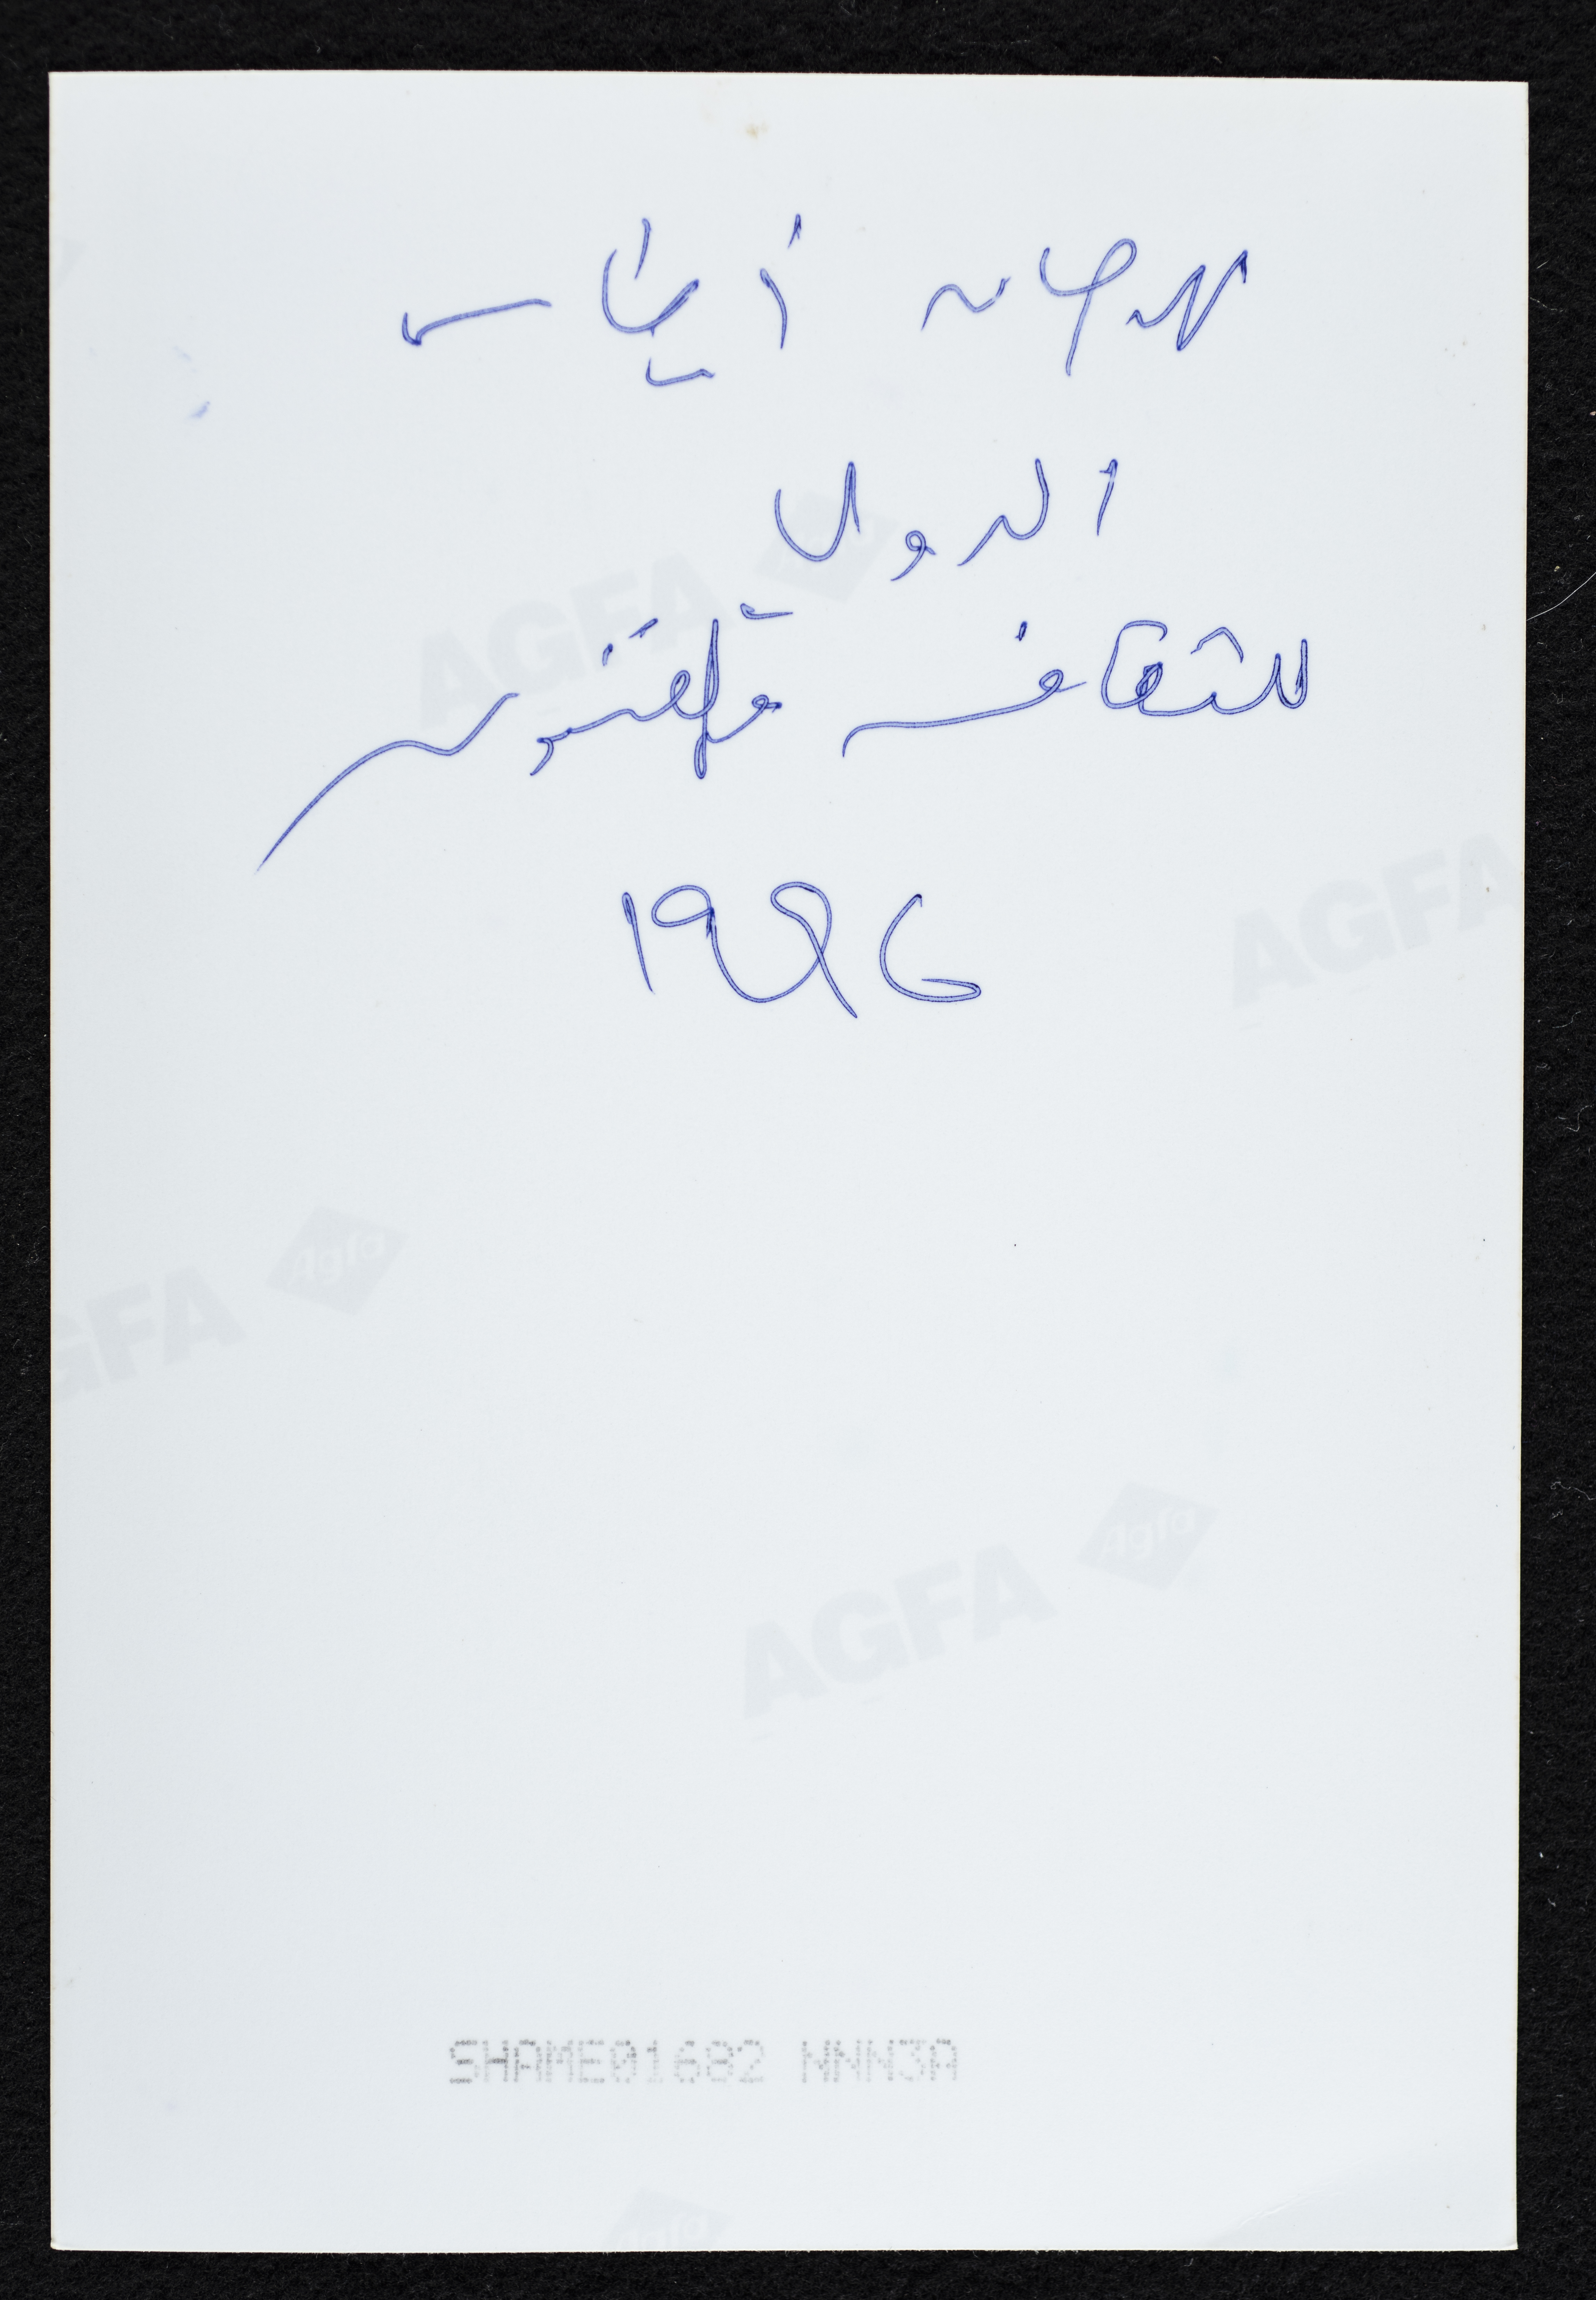 مهرجان أصيلة
الدولي
للثقافة والفنون
١٩٩٤
AGFA
Agfa
AGFA
AGFA
Agfa
AGFA
Agfa
SHAME01682 NNNN3A